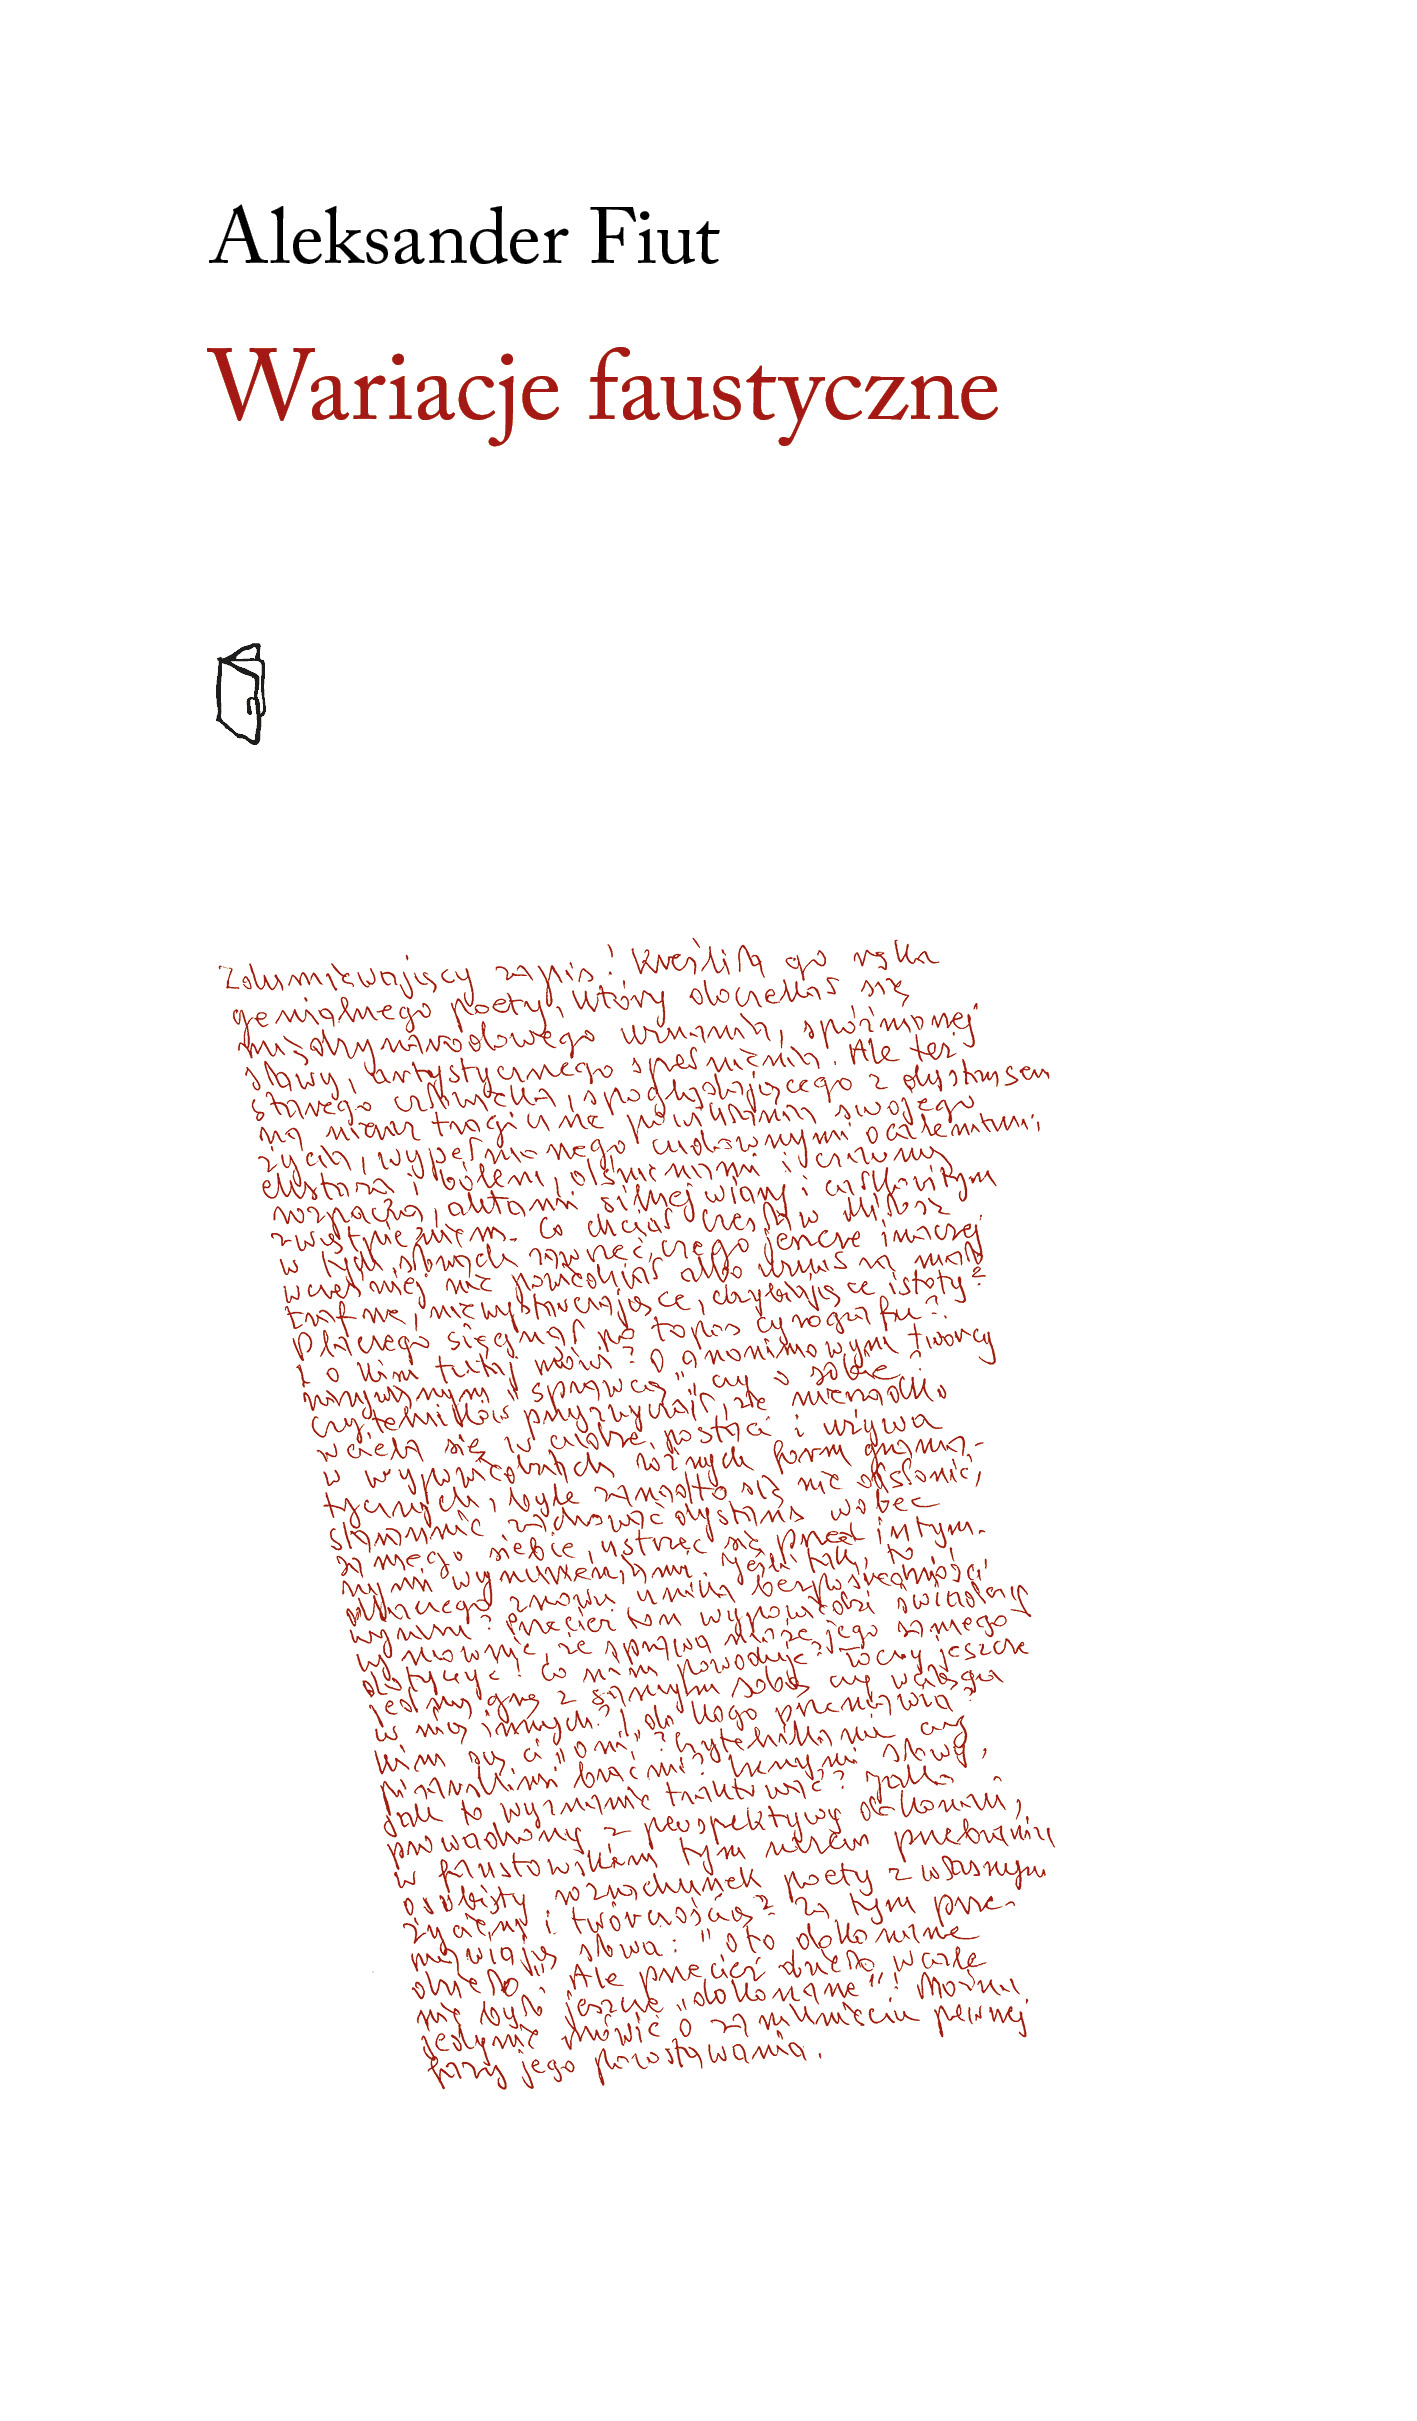 Aleksander Fiut
Wariacje faustyczne
Zdumiewający zapis! Kreśliła go ręka
genialnego poety, który doczekał się
międzynarodowego uznania, spóźnionej
sławy, artystycznego spełnienia. Ale też
starego człowieka, spoglądającego z dystansem
na nieraz tragiczne powikłania swojego
życia, wypełnionego cudownymi ocaleniami,
ekstazą i bólem, olśnieniami i czarną
rozpaczą, aktami silnej wiary i całkowitym
zwątpieniem. Co chciał Czesław Miłosz
w tych słowach zawrzeć, czego jeszcze inaczej
wcześniej nie powiedział albo uznał za mało
trafne, niewystarczające, chybiające istoty?
Dlaczego sięgnął po topos cyrografu?
I o kim tutaj mówi? O anonimowym twórcy
nazywanym "sprawcą" czy o sobie?
Czytelników przyzwyczaił, że nierzadko
wciela się w cudze postaci i używa
w wypowiedziach różnych form grama-
tycznych, byle zanadto się nie odsłonić,
starannie zachować dystans wobec
samego siebie, ustrzec się przed intym-
nymi wynurzeniami. Jeśli tak, to
dlaczego znowu unika bezpośredniości
wyznania? Przecież ton wypowiedzi świadczy
wymownie, że sprawa może jego samego
dotyczyć! Co nim powoduje? Toczy jeszcze
jedną grę z samym sobą czy wciąga
w nią innych? I do kogo przemawia?
Kim są ci "oni"? Czytelnikami czy
pisarskimi braćmi? Innymi słowy,
jak to wyznanie traktować? Jako
prowadzony z perspektywy dokonań,
w faustowskim tym razem przebraniu
osobisty rozrachunek poety z własnym
życiem i twórczością? Za tym prze-
mawiają słowa: "oto dokonane
dzieło". Ale przecież dzieło wcale
nie było jeszcze "dokonane"! Można
jedynie mówić o zamknięciu pewnej
fazy jego powstawania.